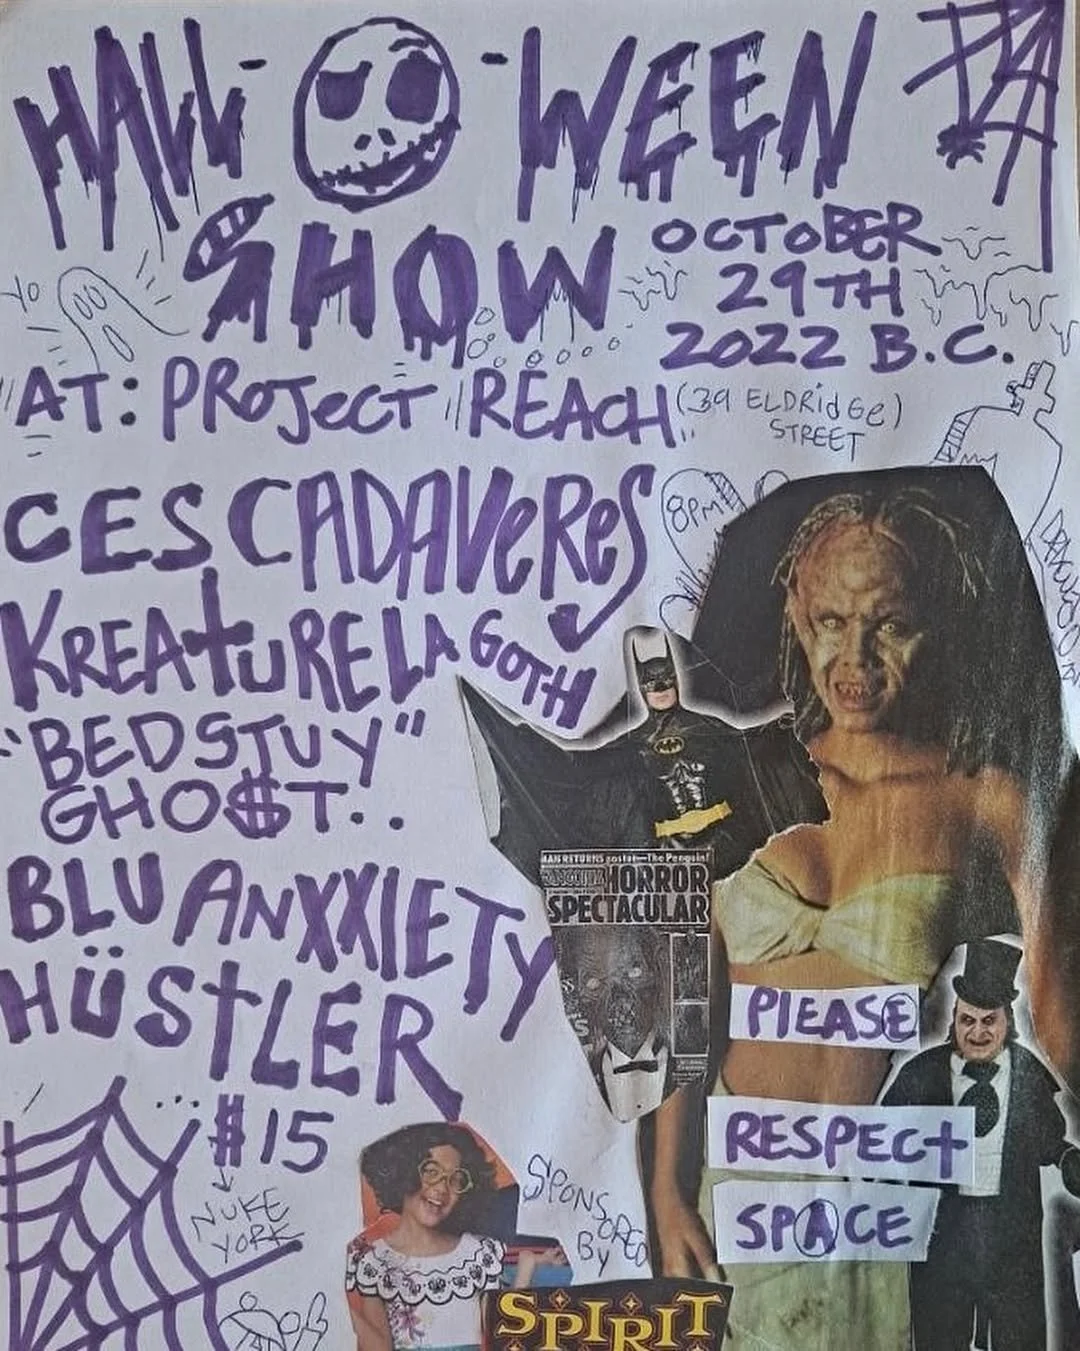 HALL-O-WEEN
SHOW
OCTOBER
29TH
2022 B.C.
YO
AT: PROJECT REACH (39 ELDRIDGE)
STREET
8PM
CES CADAVERES
KREATURE LA GOTH
"BEDSTUY"
GHO$T..
BLU ANXXIETY
HÜSTLER
$15
NUKE
YORK
HORROR
SPECTACULAR
PLEASE
RESPECT
SPACE
SPONSORED
BY
SPIRIT